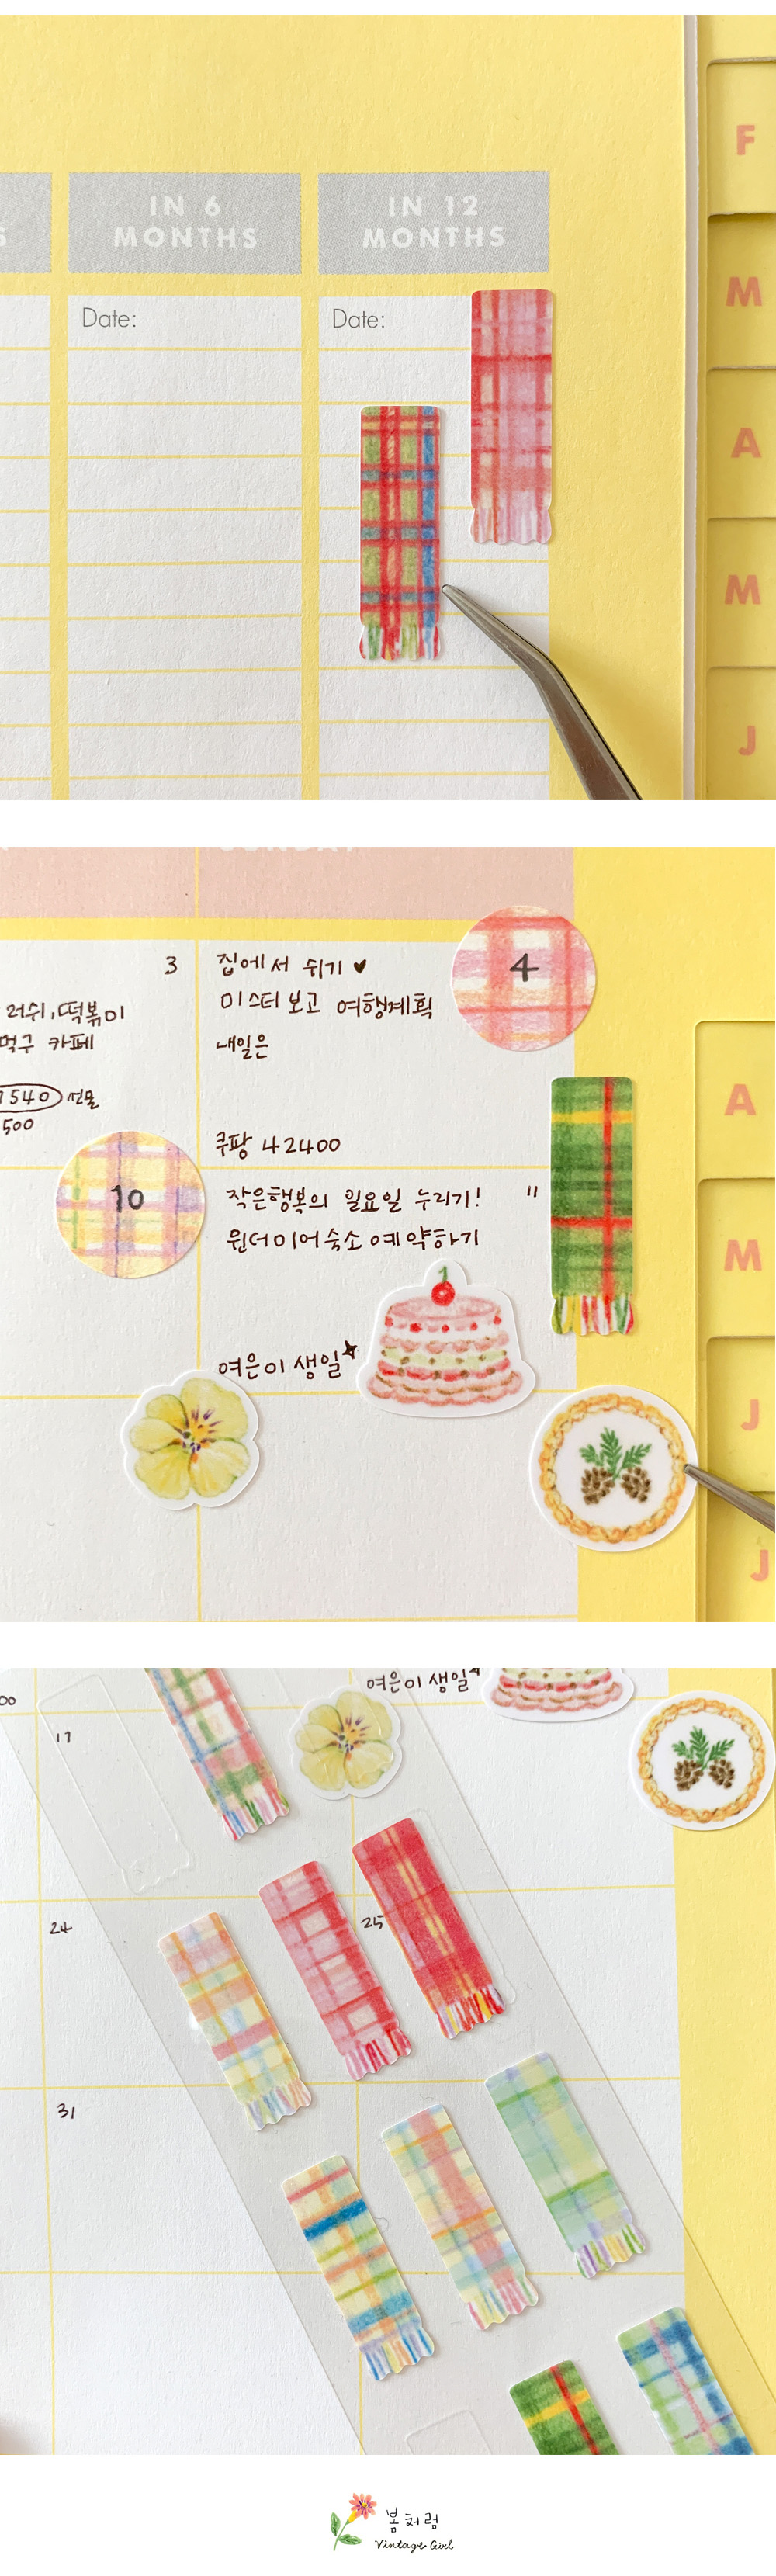 F
IN 6
MONTHS
IN 12
MONTHS
M
Date:
Date:
A
M
J
SUNDAY
3
집에서 쉬기 ♥
4
미스터 보고 여행계획
러쉬, 떡볶이
먹구 카페
내일은
A
540 선물
500
쿠팡 42400
10
작은행복의 일요일 누리기!
11
원더미어숙소 예약하기
M
여은이 생일
J
J
00
여은이 생일
17
24
25
31
봄처럼
Vintage Girl